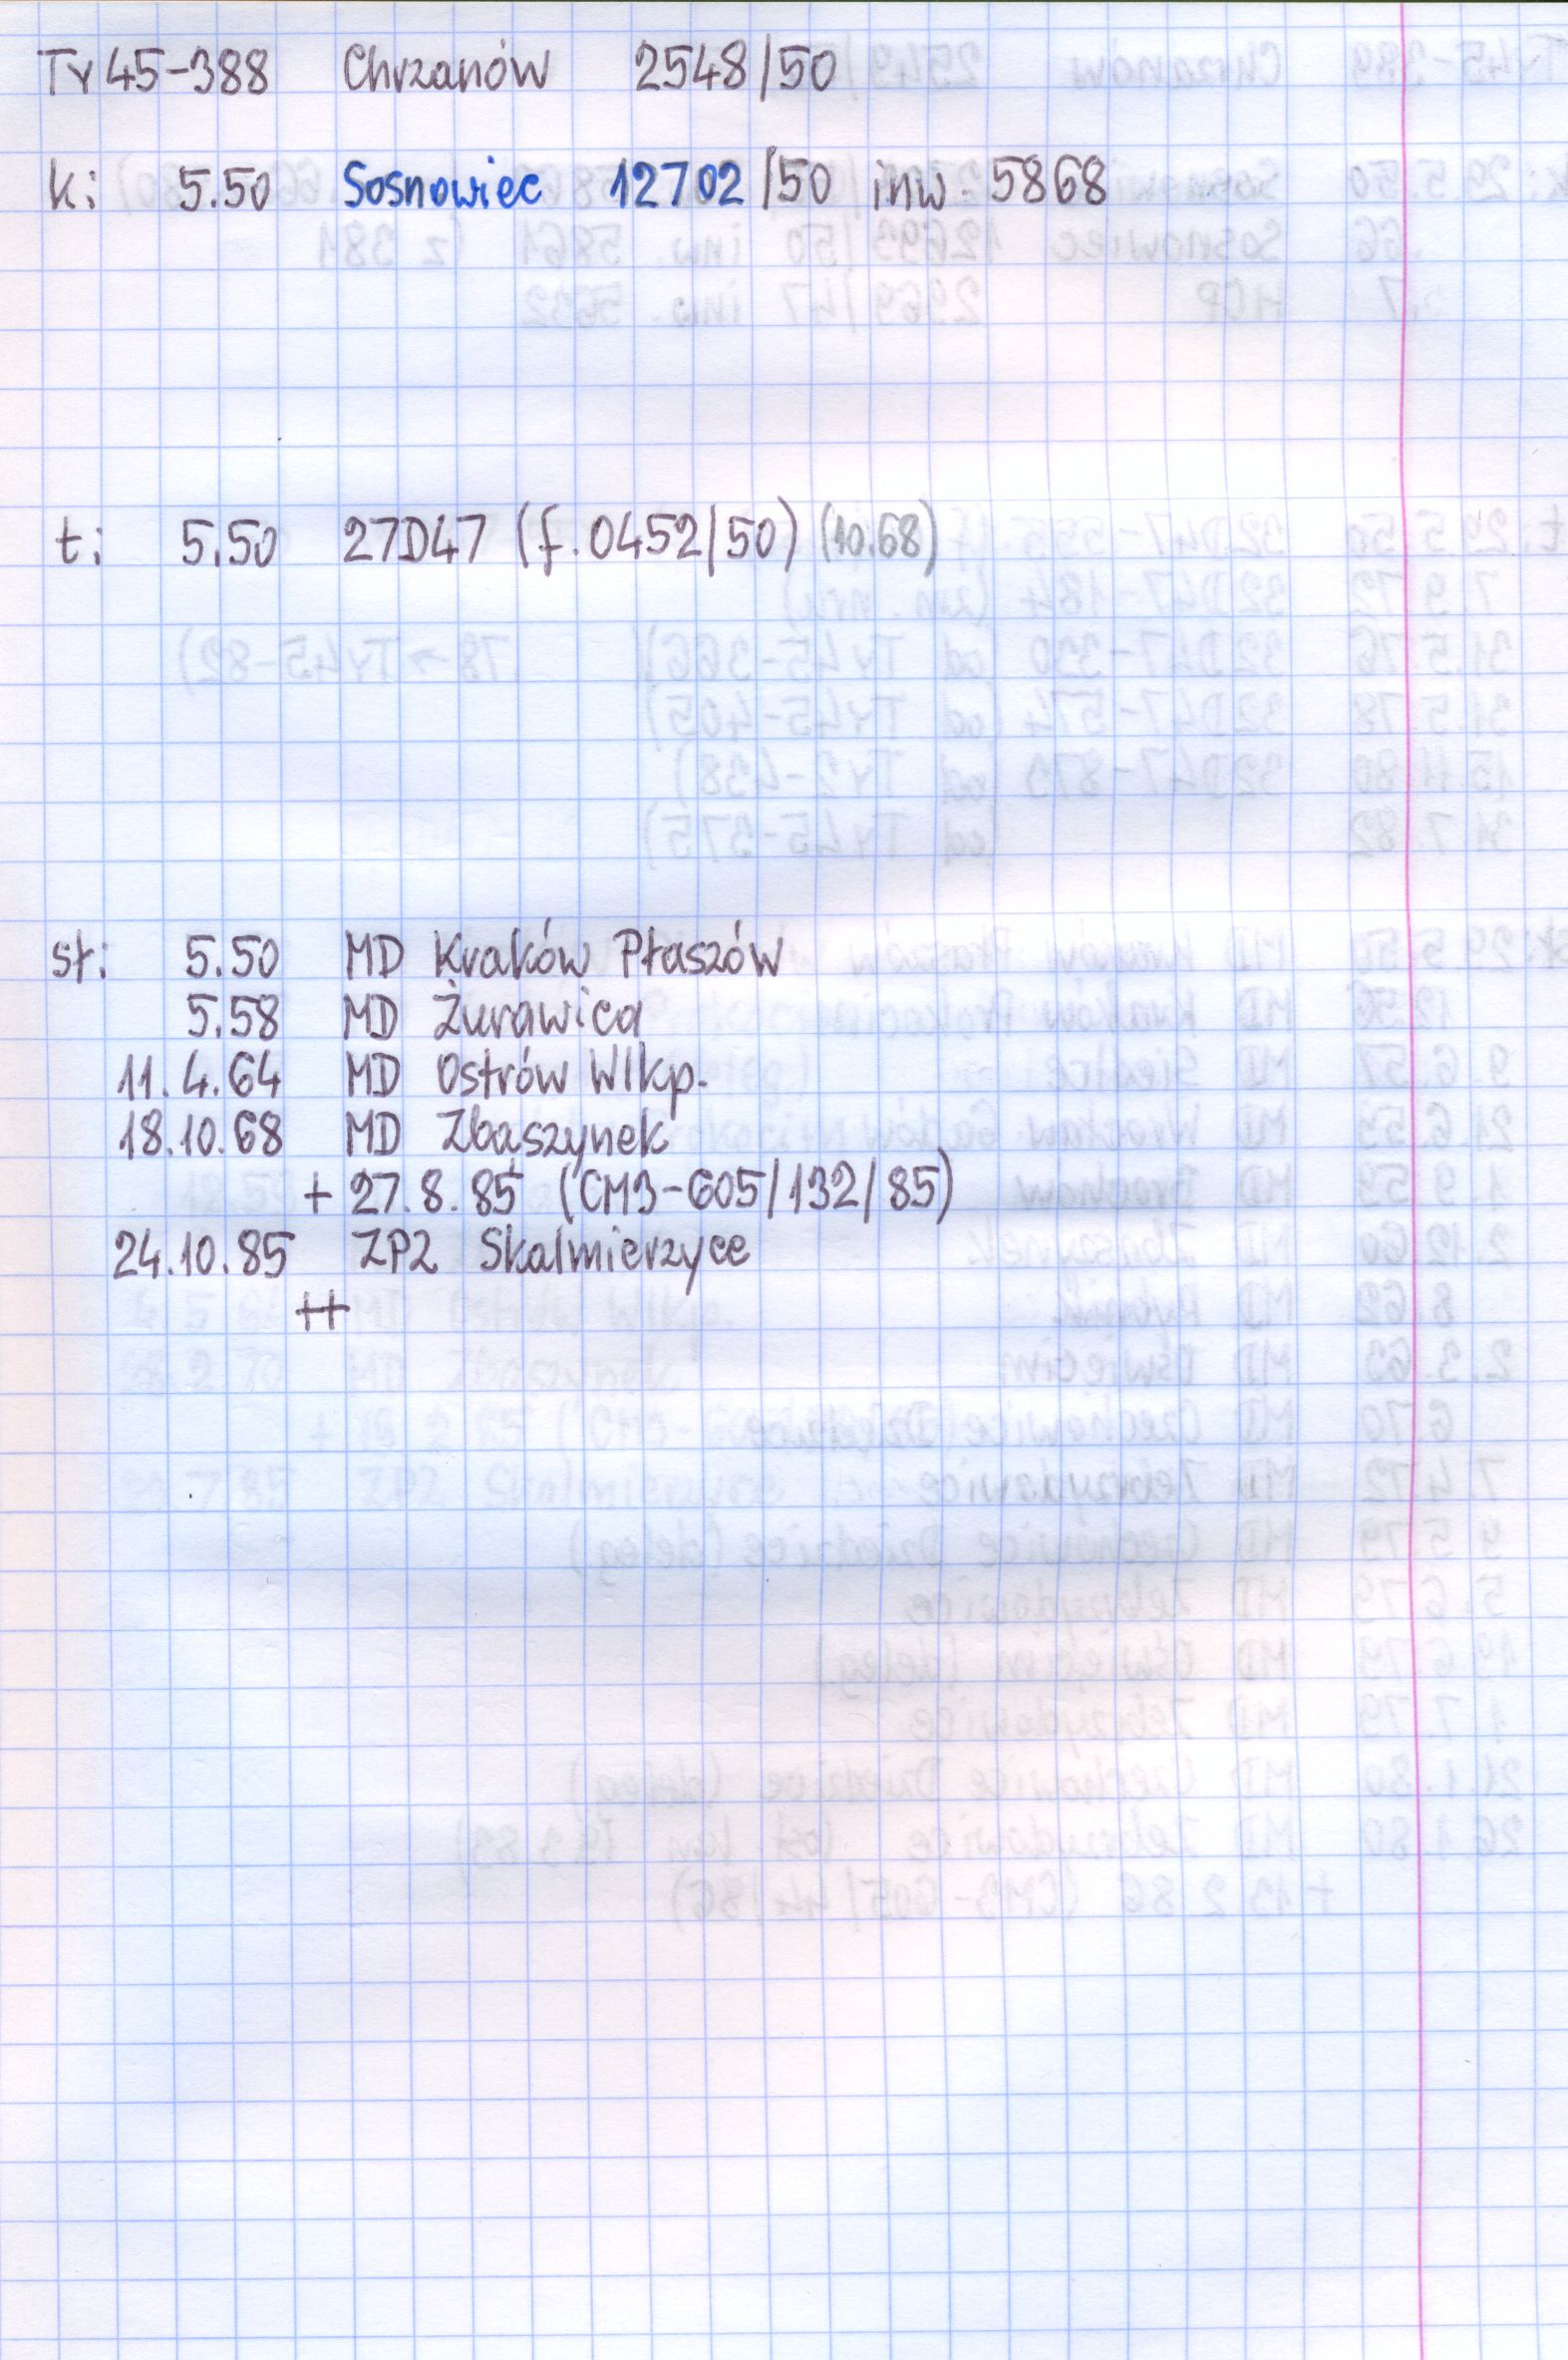 Ty45-388 Chrzanów 2548/50
k: 5.50 Sosnowiec 12702/50 inw. 5868
t: 5.50 27D47 (f. 0452/50) (10.68)
st: 5.50 MD Kraków Płaszów
5.58 MD Żurawica
11.4.64 MD Ostrów Wlkp.
18.10.68 MD Zbąszynek
+ 27.8.85 (CM3-605/132/85)
24.10.85 ZP2 Skalmierzyce
++